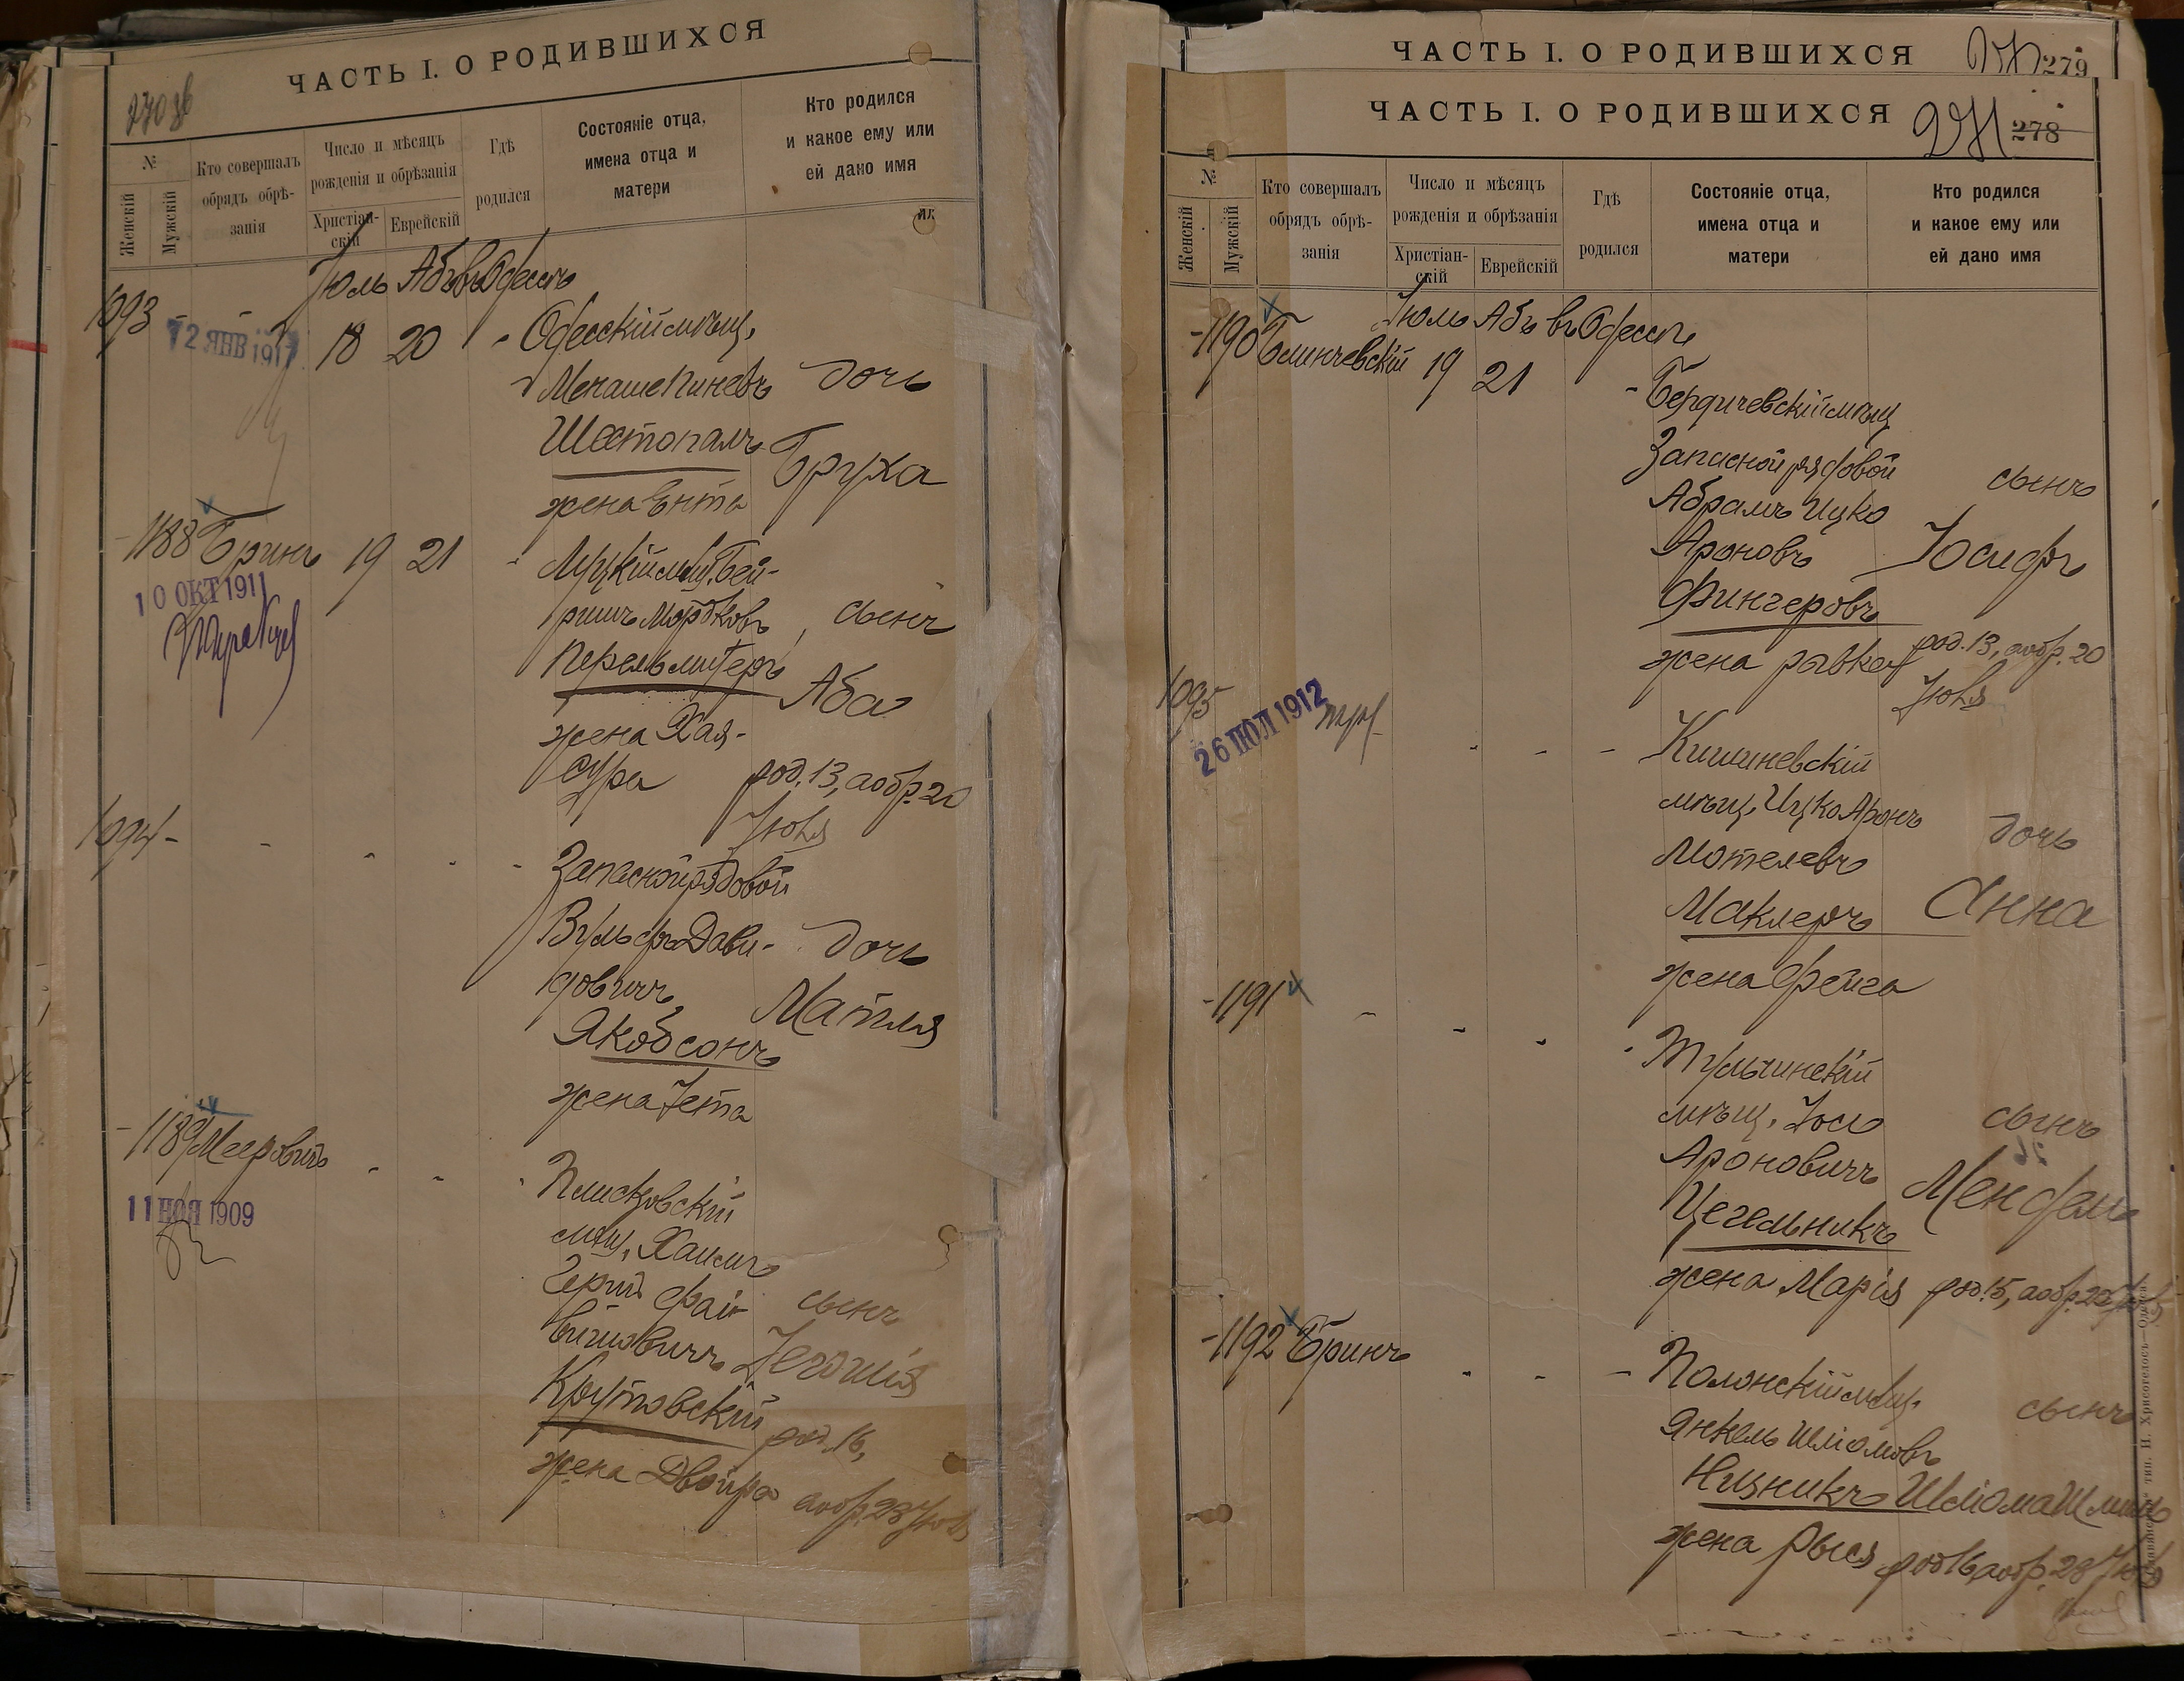 ЧАСТЬ I. О РОДИВШИХСЯ
270 об
№
Женскій
Мужскій
Кто совершалъ
обрядъ обрѣ-
занія
Число и мѣсяцъ
рожденія и обрѣзанія
Христіан-
скій
Еврейскій
Гдѣ
родился
Состояніе отца,
имена отца и
матери
Кто родился
и какое ему или
ей дано имя
Іюль Абъ въ Одессѣ
1093 - - 18 20 - Одесскій мѣщ.
12 ЯНВ 1917
Менаше Пиневъ дочь
Шестопалъ Бруха
жена Ента
-1188 Бринъ 19 21 - Луцкій мѣщ. Бей-
10 ОКТ 1911
ришъ Мордковъ сынъ
Перельмутеръ Аба
жена Хая-
Сура род. 13, а обр. 20
Іюля
1094 - - - - - Запасной рядовой
Вульфъ Дави- дочь
довичъ Матля
Якобсонъ
жена Іета
-1189 Мееровичъ - - - Плисковскій
11 НОЯ 1909
мѣщ. Хаимъ
Гершъ Фай- сынъ
вишовичъ Іегошія
Крутовскій род. 16,
жена Двойра а обр. 23 Іюля
ЧАСТЬ I. О РОДИВШИХСЯ
279
ЧАСТЬ I. О РОДИВШИХСЯ
271 278
№
Женскій
Мужскій
Кто совершалъ
обрядъ обрѣ-
занія
Число и мѣсяцъ
рожденія и обрѣзанія
Христіан-
скій
Еврейскій
Гдѣ
родился
Состояніе отца,
имена отца и
матери
Кто родился
и какое ему или
ей дано имя
Іюль Абъ въ Одессѣ
-1190 Блинчевскій 19 21 - Бердичевскій мѣщ
Запасной рядовой сынъ
Абрамъ Ицко
Ароновъ Іосифъ
Фингеровъ
жена Ривка род. 13, а обр. 20
Іюля
1095 - - - Кишиневскій
26 ІЮЛ 1912
мѣщ. Ицко Аронъ дочь
Мотелевъ
Маклеръ Анна
жена Фейга
-1191 - - - - Тульчинскій
мѣщ. Іось сынъ
Ароновичъ Мендель
Цегельникъ
жена Марія род. 15, а обр.
-1192 Бринъ - - - Полонскій мѣщ.
Янкель Шліомовъ сынъ
Ницникъ Шліома
жена Рыся род 16, а обр. 28 Іюля